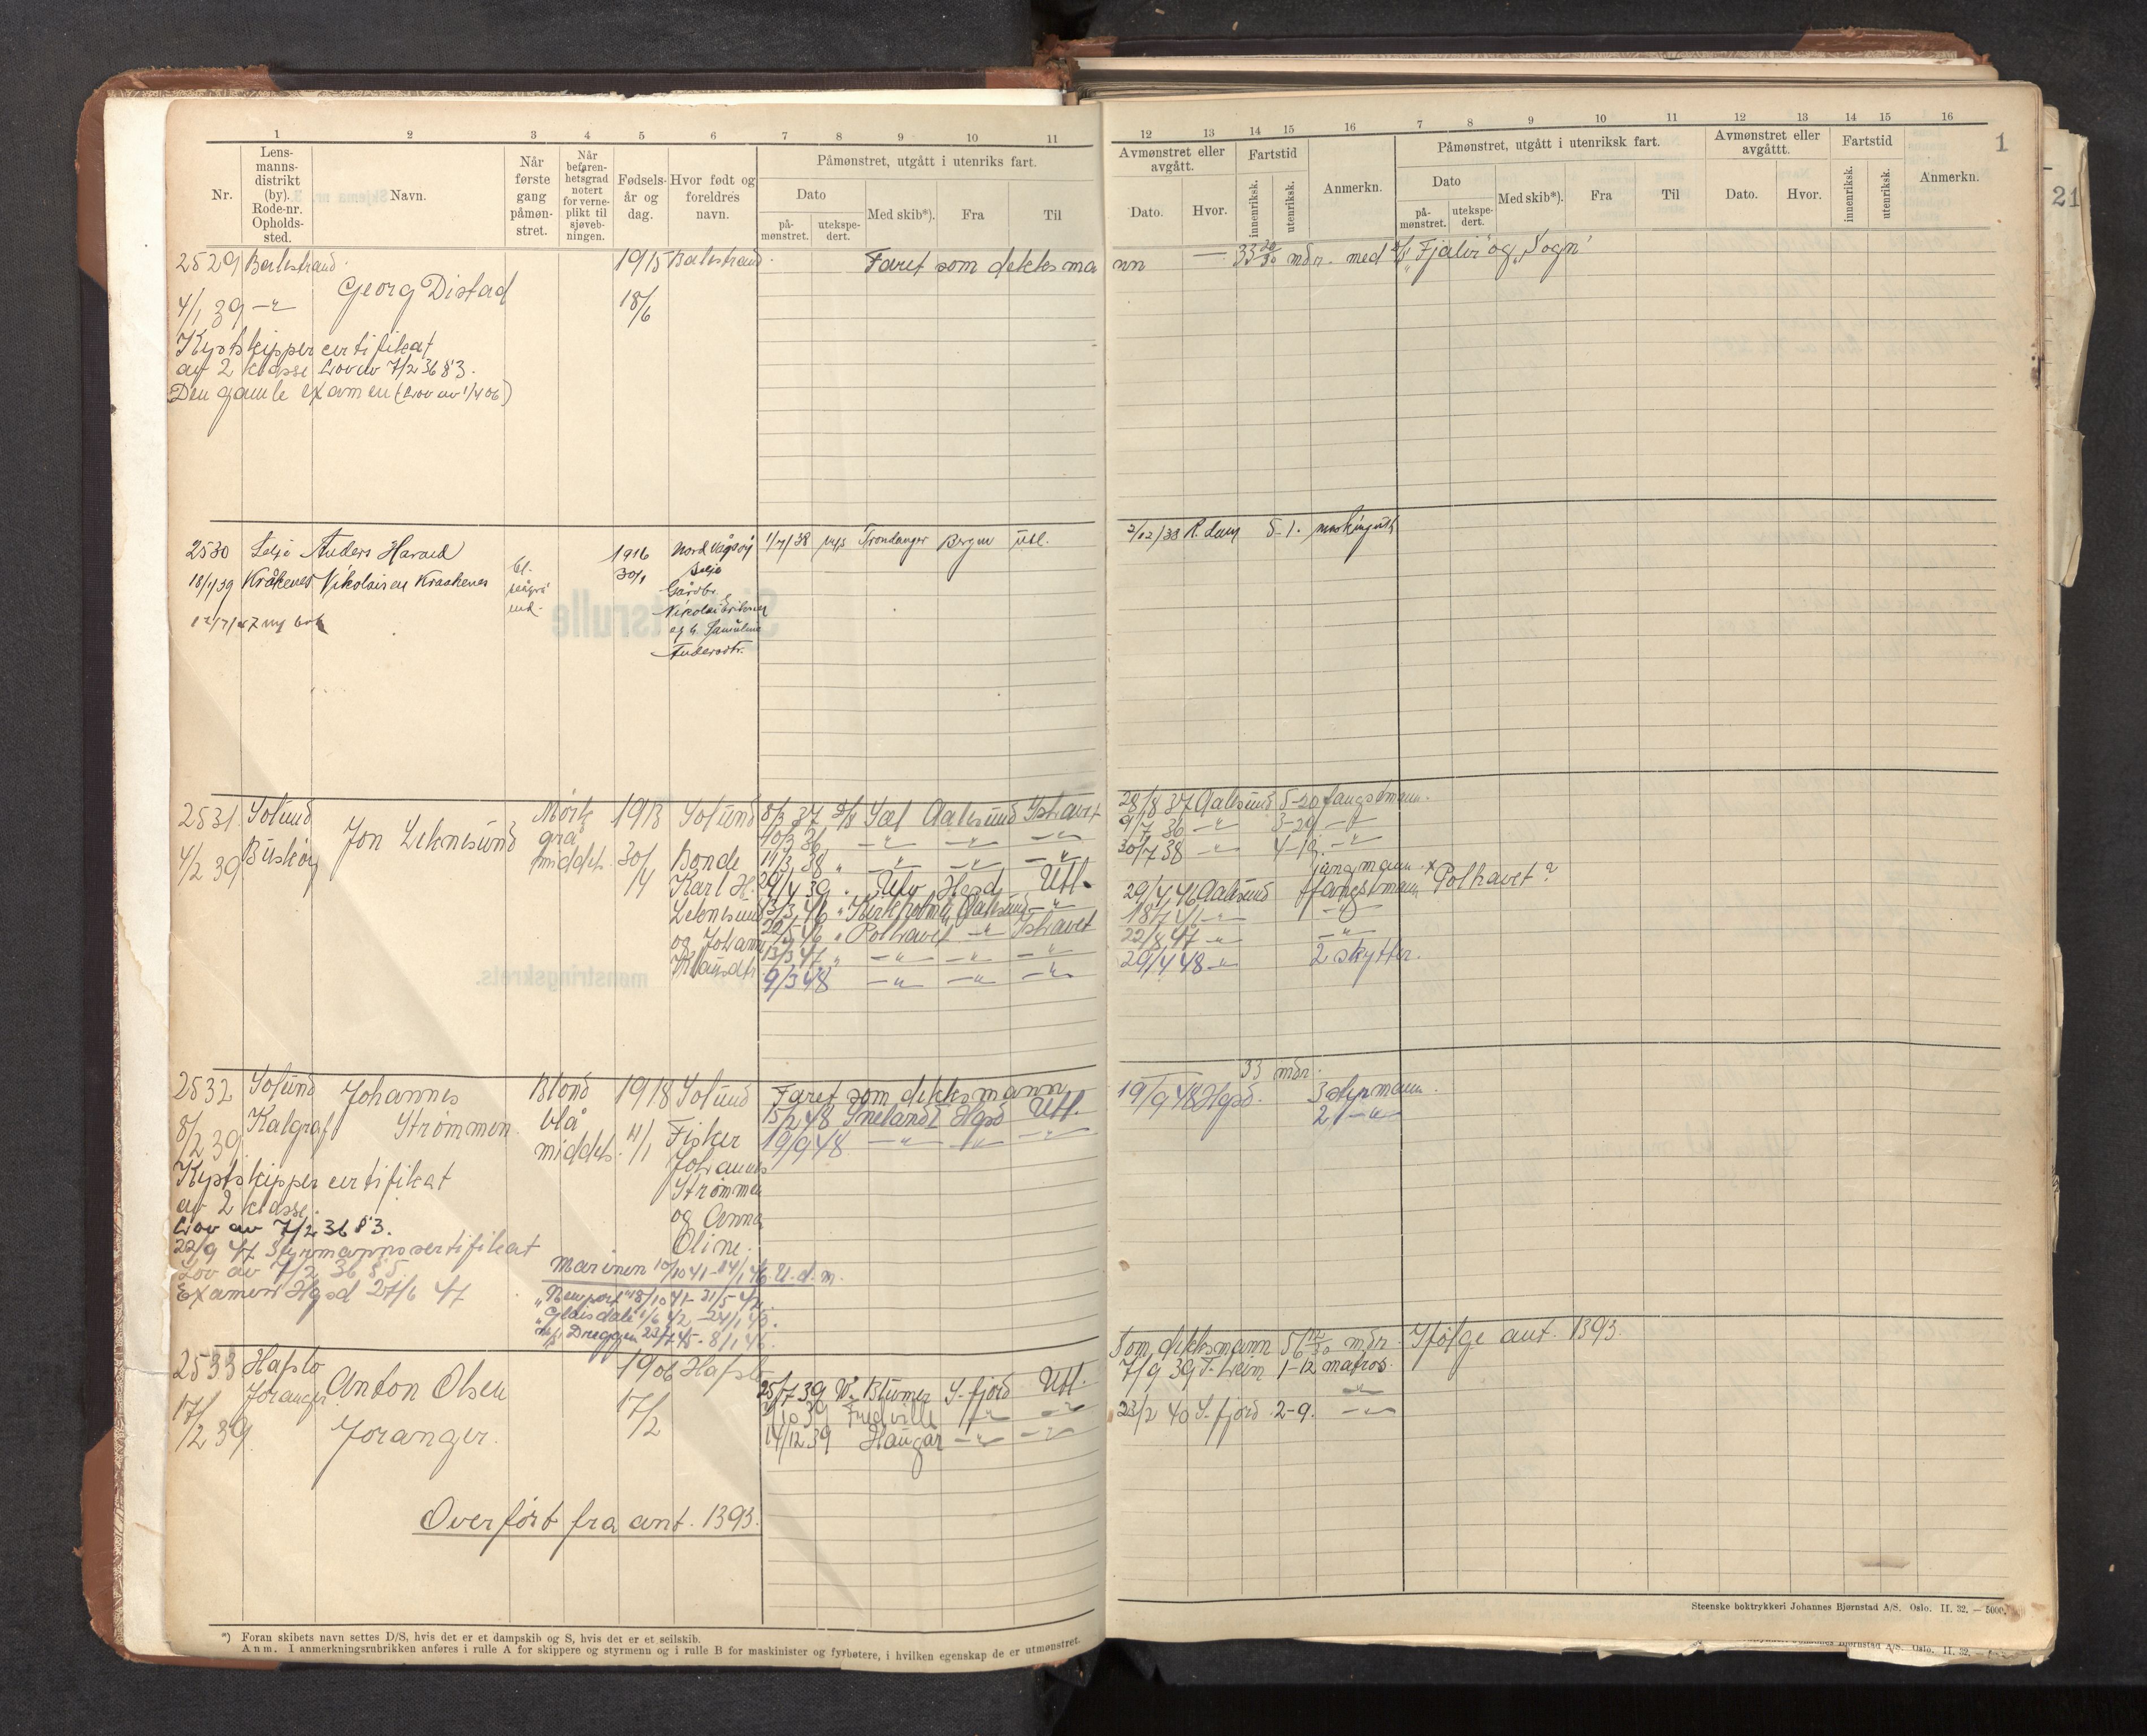 1 2 3 4 5 6 7 8 9 10 11
Nr.
Lensmanns-distrikt (by). Rode-nr. Opholds-sted.
Navn.
Når første gang påmøn-stret.
Når befaren-hetsgrad notert for verne-plikt til sjøveb-ningen.
Fødsels-år og dag.
Hvor født og foreldres navn.
Påmønstret, utgått i utenriks fart.
Dato
på-mønstret.
utekspe-dert.
Med skib*).
Fra
Til
12 13 14 15 16 7 8 9 10 11 12 13 14 15 16
Avmønstret eller avgått.
Dato.
Hvor.
Fartstid
innenriksk.
utenriksk.
Anmerkn.
Påmønstret, utgått i utenriksk fart.
Dato
på-mønstret.
utekspe-dert.
Med skib*).
Fra
Til
Avmønstret eller avgåttt.
Dato.
Hvor.
Fartstid
innenriksk.
utenriksk.
Anmerkn.
1
21
2529 Balestrand 1915 Balestrand. Faret som dekksmann — 33 20/30 mdr. med "Fjalir" og "Sogn"
Georg Distad
4/1 39 18/6
Kystskippercertifikat
av 2 klasse Lov av 7/2 36 § 3.
Den gamle examen (Lov av 1/4 06)
2530 Selje Anders Harald 1916 Nord Vågsøy 1/7/38 M/S Trondanger Bergen Utl. 2/12/38 R.dam 5-1.
18/1/39 Kråkenes Nikolaisen Kraakenes bl. 30/1 Selje
Gårdbr.
12/7/47 ny bok Nikolai Eriksen
og h. Samuline
Andersdtr.
2531 Solund Mørk 1913 Solund 8/3 37 Sæl Aalesund Ishavet 28/8 37 Aalesund 5-20 fangstmann.
Jon Leknesund grå 10/3 36 —"— —"— —"— 9/7 36 —"— 3-29 —"—
4/2 39 Buskøy middels 30/4 Bonde 11/3 38 —"— —"— —"— 30/7 38 —"— —"—
Karl H. 39 Hgsd Utl.
Leknesund 13/3 46 Aalesund —"— 29/4 46 Aalesund fangstmann Polhavet?
og Johanne 46 Polhavet —"— Ishavet —"— —"—
13/3 47 —"— —"— —"— 22/8 47 —"— —"—
9/3 48 —"— —"— —"— 29/4 48 —"— 2 skytter.
33 mdr.
2532 Solund Johannes Blond 1918 Solund Faret som dekksmann
Kalgraf Strømmen blå 15/2 48 Sneland I Hgsd Utl. 19/9 48 Hgsd. 3 styrmann.
8/2 39 middels 11/1 Fisker 19/9 48 —"— —"— —"— 2 —"—
Johannes
Kystskippercertifikat Strømmen
av 2 klasse. og Anna
Lov av 7/2 36 § 3. Oline.
22/9 47 Styrmannscertifikat
Lov av 7/2 36 § 5
Examen Hgsd 27/6 47
Marinen 10/10 41 - 14/1 46 U.d.m.
"Newport" 18/10 41 - 31/5 42.
"Glaisdale" 1/6 42 - 24/1 45.
Dreggen 8/1 46.
Som dekksmann 56 12/30 mdr. Ifølge ant. 1393.
2533 Hafslo 1906 Hafslo
Joranger Anton Olsen 25/7 39 Blumer S-fjord Utl. 7/9 39 T.heim 1-12 matros.
17/2 39 Joranger. 17/2 10 39 Fredville —"— —"— —"—
14/12 39 Haugar —"— —"— 23/2 40 S.fjord 2-9. —"—
Overført fra ant. 1393.
Steenske boktrykkeri Johannes Bjørnstad A/S. Oslo. II. 32. — 5000.
*) Foran skibets navn settes D/S, hvis det er et dampskib og S, hvis det er et seilskib.
Anm. I anmerkningsrubrikken anføres i rulle A for skippere og styrmenn og i rulle B for maskinister og fyrbøtere, i hvilken egenskap de er utmønstret.